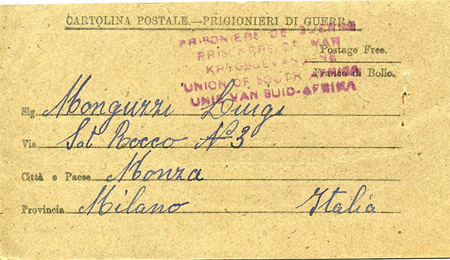 CARTOLINA POSTALE.—PRIGIONIERI DI GUERRA
PRISONNIERS DE GUERRE
PRISONERS OF WAR
KRYGSGEVANGENE
UNION OF SOUTH AFRICA
UNIE VAN SUID-AFRIKA
Postage Free.
Franco di Bollo.
Sig. Monguzzi Luigi
Via Sat Rocco N 3
Città e Paese Monza
Provincia Milano Italia